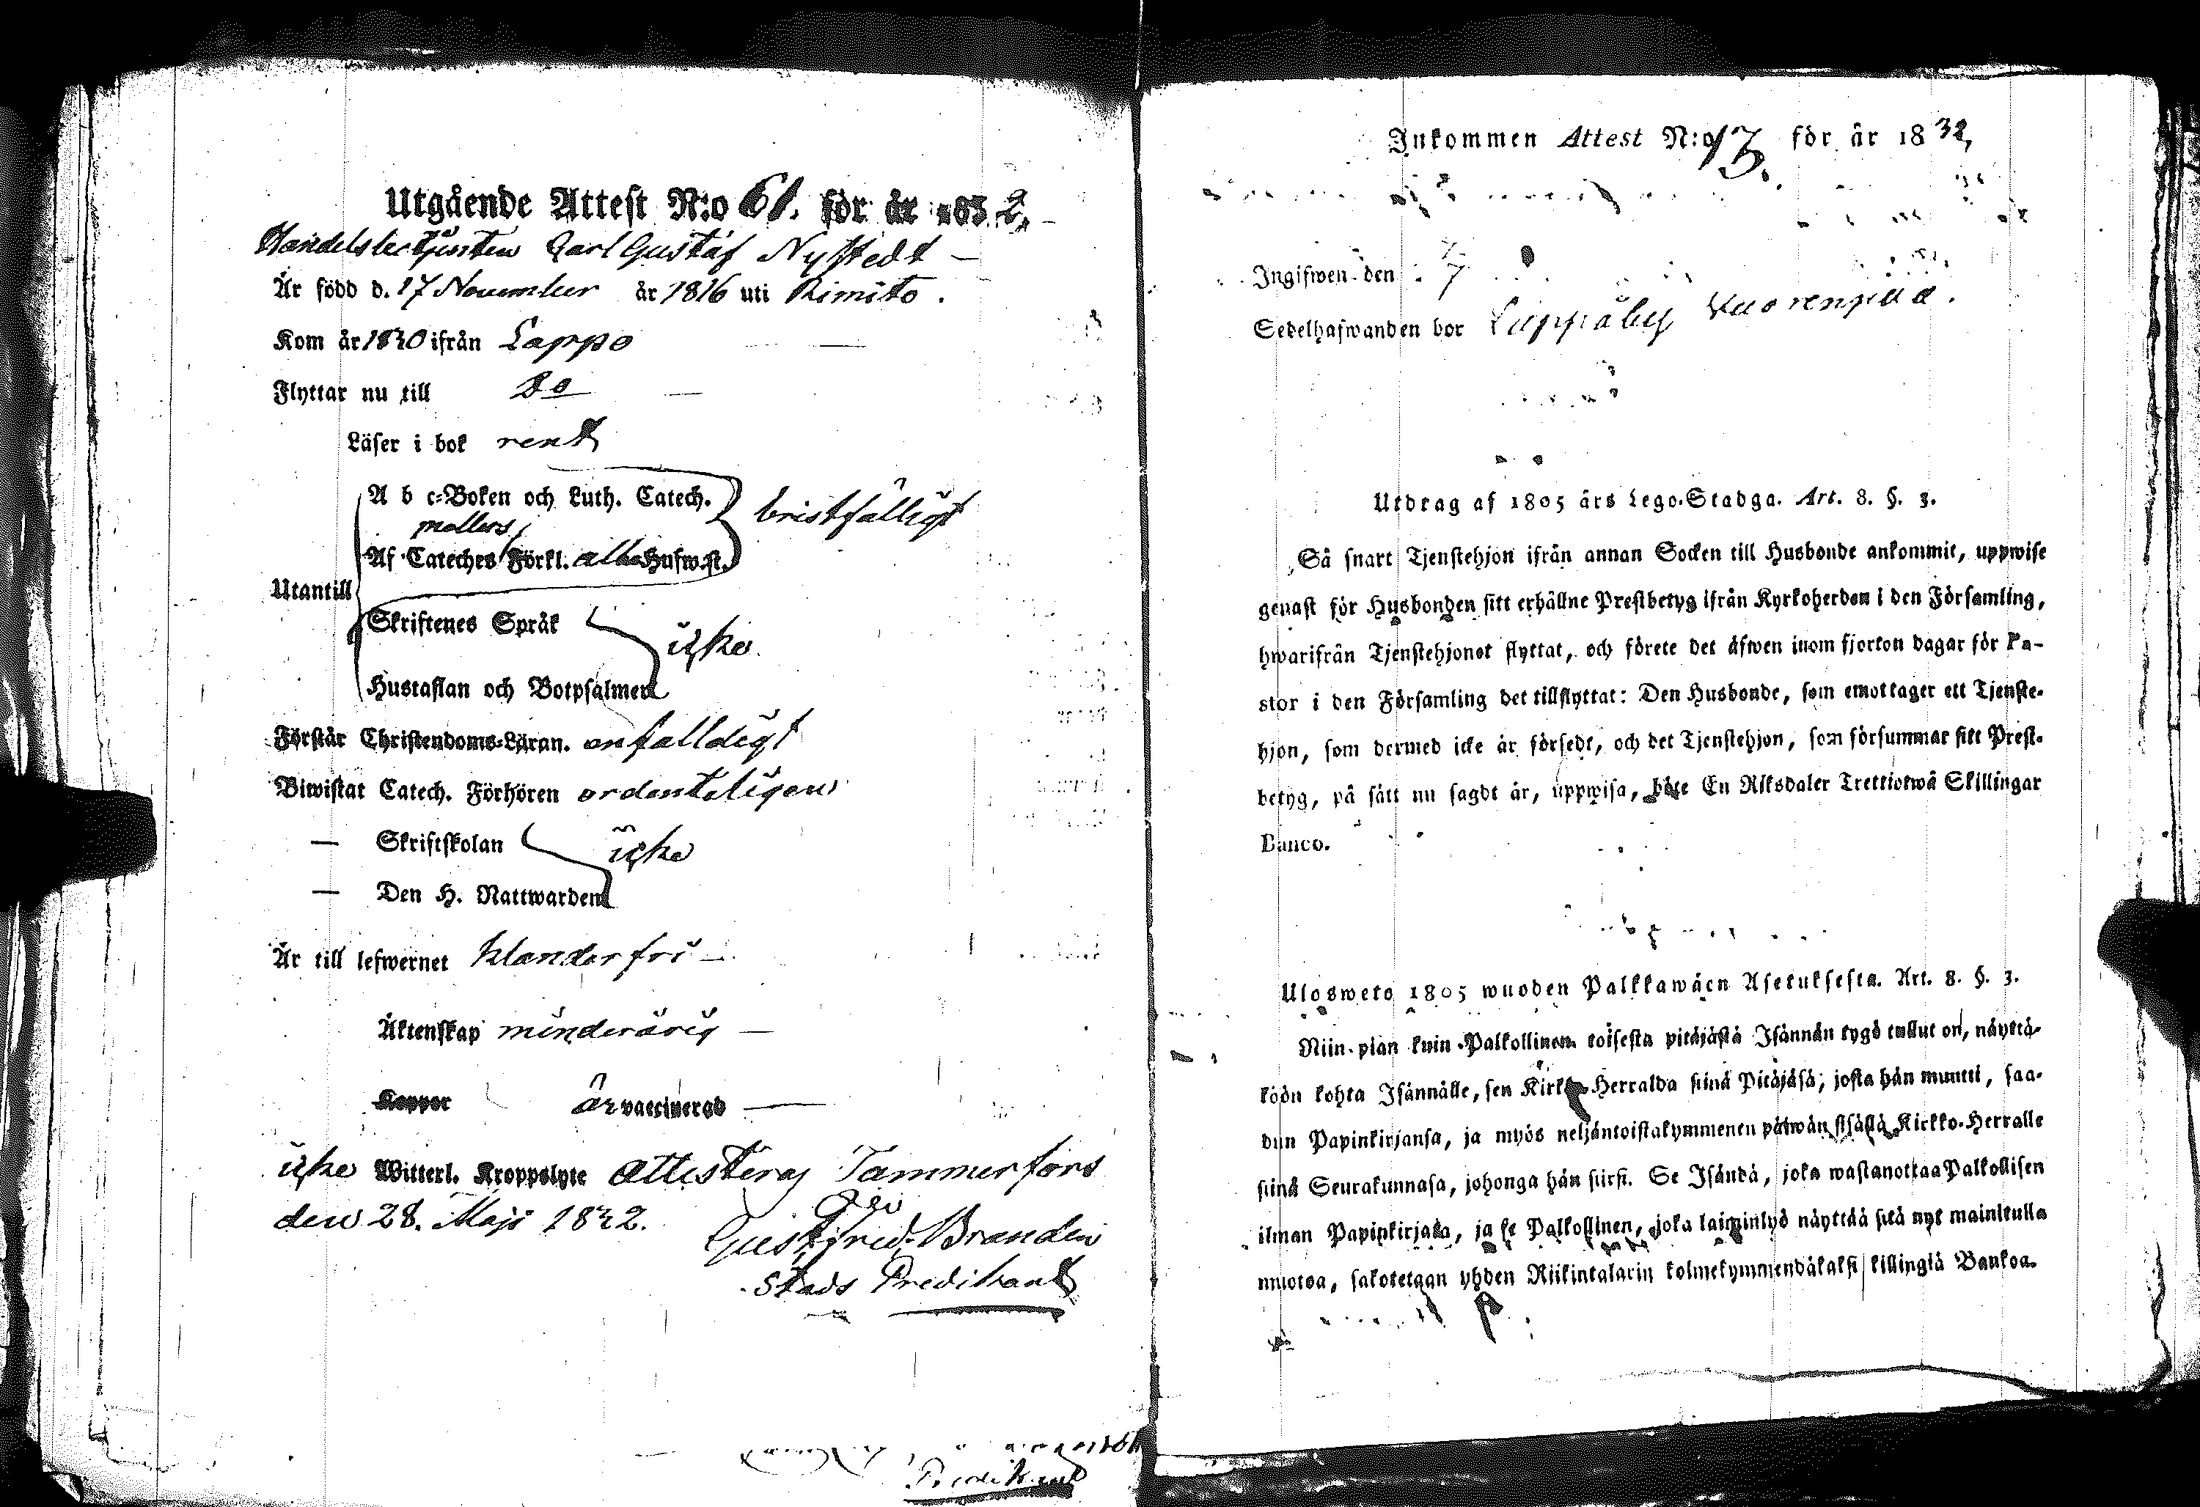 Utgående Attest N:o 61. för år 1832.
Handelsbetjenten Carl Gustaf Nystedt —
Är född d. 17 November år 1816 uti Kimito.
Kom år 1830 ifrån Lappo
Flyttar nu till Do —
Läser i bok rent
A b c-Boken och Luth. Catech.
bristfälligt
mellers
Af Cateches Förkl. alla Husw.st.
Utantill
Skriftenes Språk
icke
Hustaflan och Botpsalmen
Förstår Christendoms-Läran. enfalldigt
Biwistat Catech. Förhören ordenteligen
— Skriftskolan
icke
— Den H. Nattwarden
Är till lefwernet klanderfri —
Äktenskap minderårig —
Koppor är vaccinerad —
icke Witterl. Kroppslyte attesteras Tammerfors
den 28. Maji 1832.
Gust. Fred. Brandin
Stads Predikant
Predikant
Inkommen Attest N:o 13. för år 1832,
Ingifwen den 7
Sedelhafwanden bor Luppåby Vuorenpää.
Utdrag af 1805 års Lego-Stadga. Art. 8. §. 3.
Så snart Tjenstehjon ifrån annan Socken till Husbonde ankommit, uppwise
genast för Husbonden sitt erhållne Prestbetyg ifrån Kyrkoherden i den Församling,
hwarifrån Tjenstehjonet flyttat, och förete det äfwen inom fjorton dagar för Pa-
stor i den Församling det tillflyttat: Den Husbonde, som emottager ett Tjenste-
hjon, som dermed icke är försedt, och det Tjenstehjon, som försummar sitt Prest-
betyg, på sätt nu sagdt är, uppwisa, böte En Riksdaler Trettiotwå Skillingar
Banco.
Ulosweto 1805 wuoden Palkkawäen Asetuksesta. Art. 8. §. 3.
Niin pian kuin Palkollinen toisesta pitäjästä Isännän tygö tullut on, näyttä-
köön kohta Isännälle, sen Kirkko-Herralda siinä Pitäjäsä, josta hän muutti, saa-
dun Papinkirjansa, ja myös neljäntoistakymmenen päiwän sisällä Kirkko-Herralle
siinä Seurakunnasa, johonga hän siirsi. Se Isändä, joka wastanottaa Palkollisen
ilman Papinkirjata, ja se Palkollinen, joka laiminlyö näyttää sitä nyt mainitulla
muotoa, sakotetaan yhden Riikintalarin kolmekymmendäkaksi killingiä Bankoa.